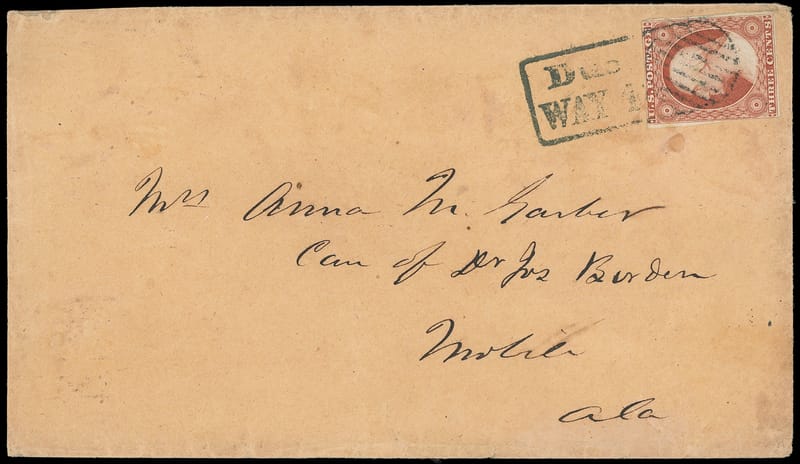 Due
WAY 1
U.S. POSTAGE
THREE CENTS
Mrs Anna M. Garber
Care of Dr Jos Burden
Mobile
Ala